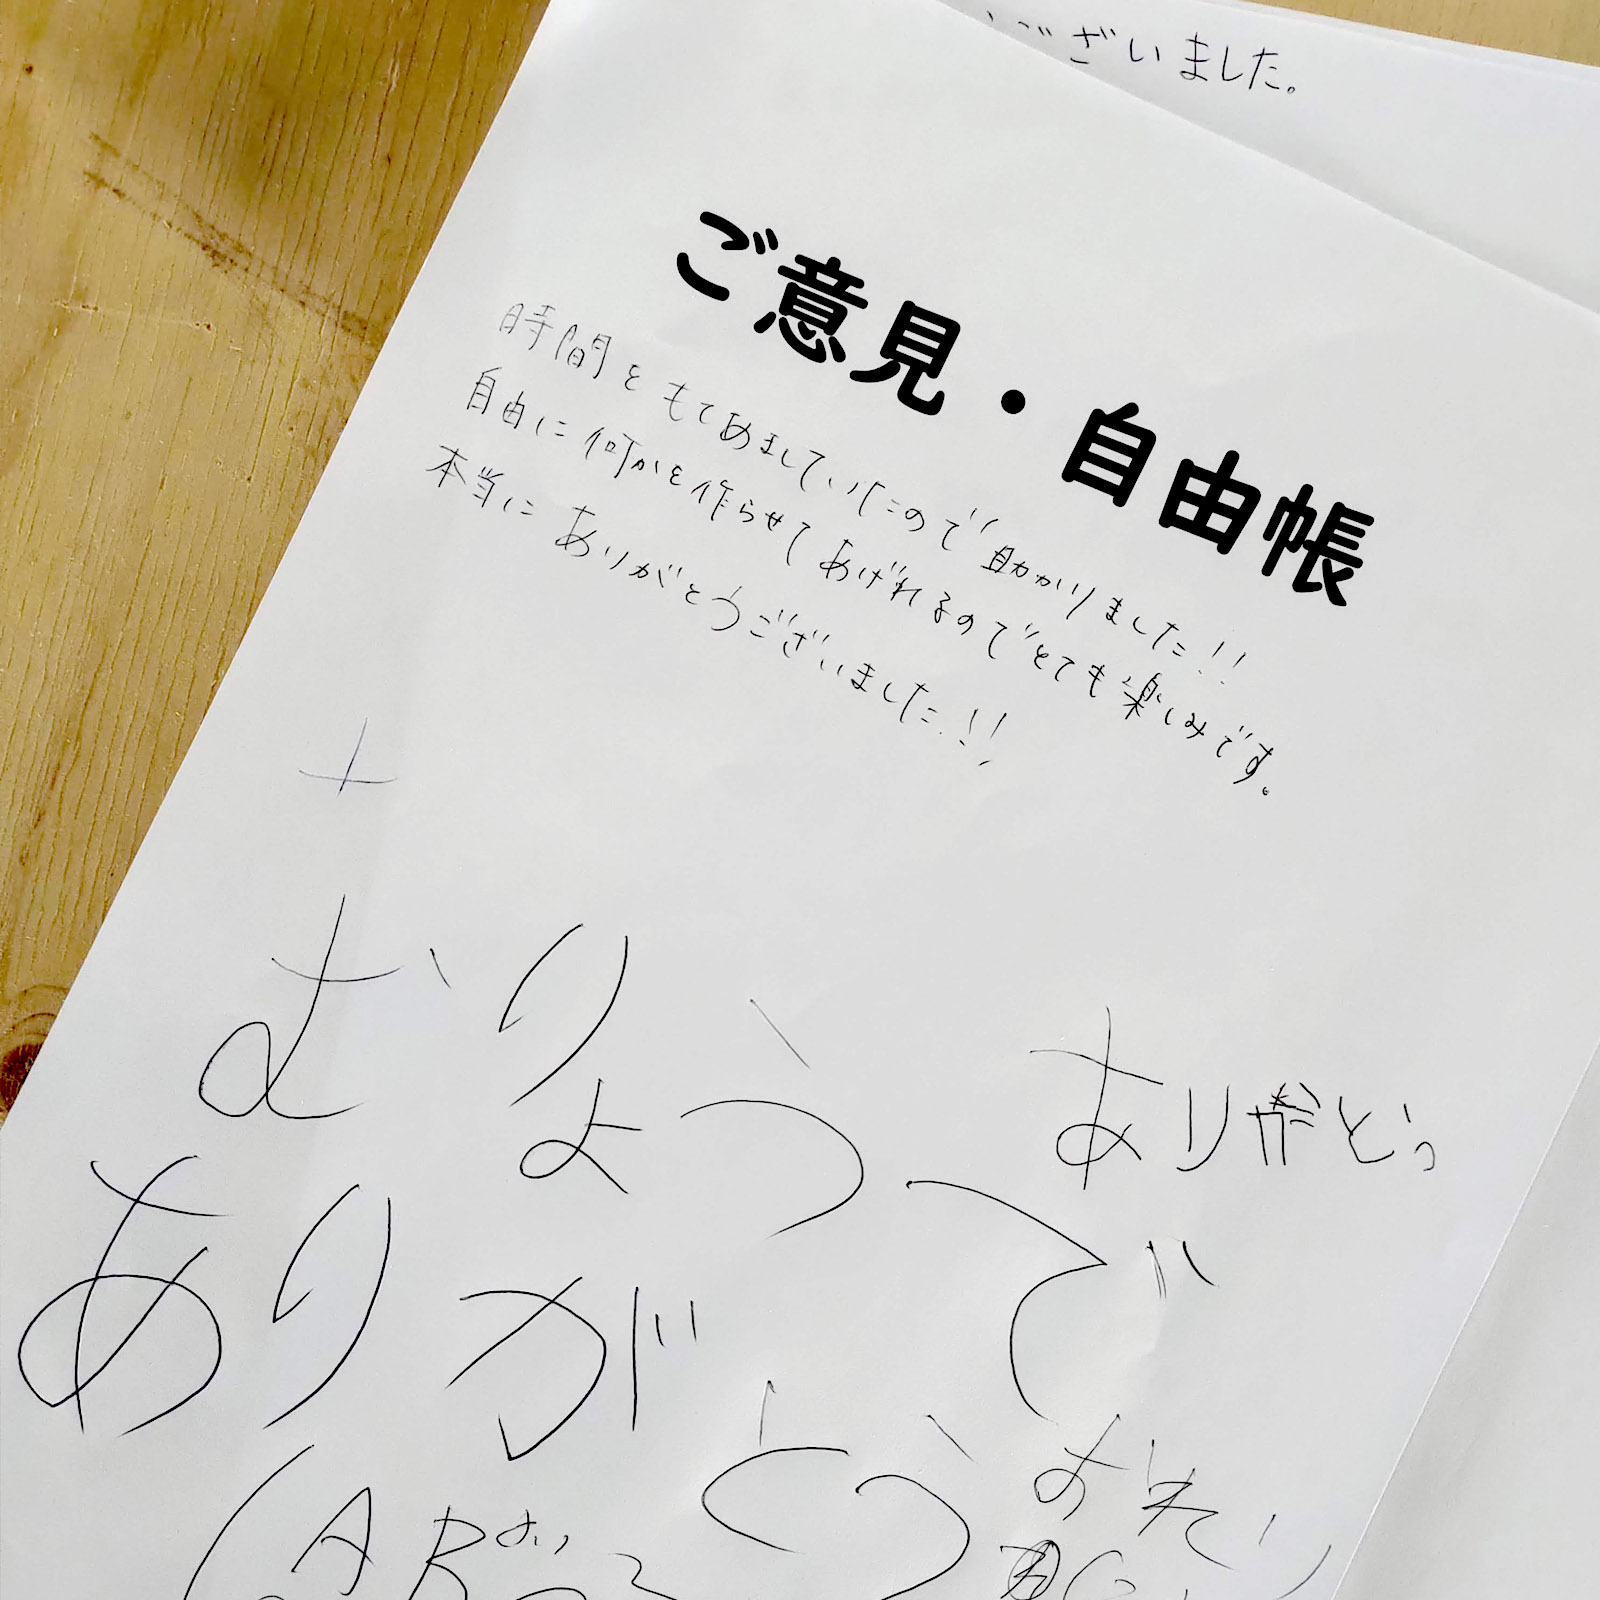 ございました。
ご意見・自由帳
時間をもてあましていたので助かりました!!
自由に何かを作らせてあげれるのでとても楽しみです。
本当にありがとうございました!!
むりょうで
ありがとう
ありがとう